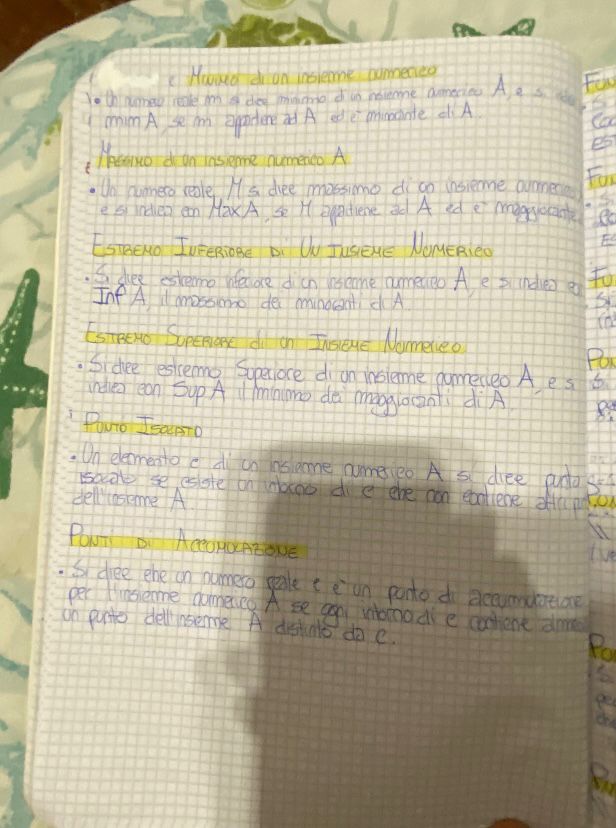 Minimo di un insieme numerico
• Un numero reale m si dice minimo di un insieme numerico A e si
minA, se m appartiene ad A ed è minorante di A.
Massimo di un insieme numerico A
• Un numero reale M si dice massimo di un insieme numerico
e si indica con MaxA, se M appartiene ad A ed è maggiorante
ESTREMO INFERIORE DI UN INSIEME NUMERICO
• Si dice estremo inferiore di un insieme numerico A, e si indica con
Inf A, il massimo dei minoranti di A
ESTREMO SUPERIORE di un INSIEME Numerico
• Si dice estremo Superiore di un insieme numerico A, e s
indica con Sup A il minimo dei maggioranti di A
PUNTO ISOLATO
• Un elemento c di un insieme numerico A si dice punto
isolato se esiste un intorno di c che non contiene altri
dell'insieme A
PUNTI DI ACCUMULAZIONE
• Si dice che un numero reale c è un punto di accumulazione
per l'insieme numerico A se ogni intorno di c contiene almeno
un punto dell'insieme A distinto da c.